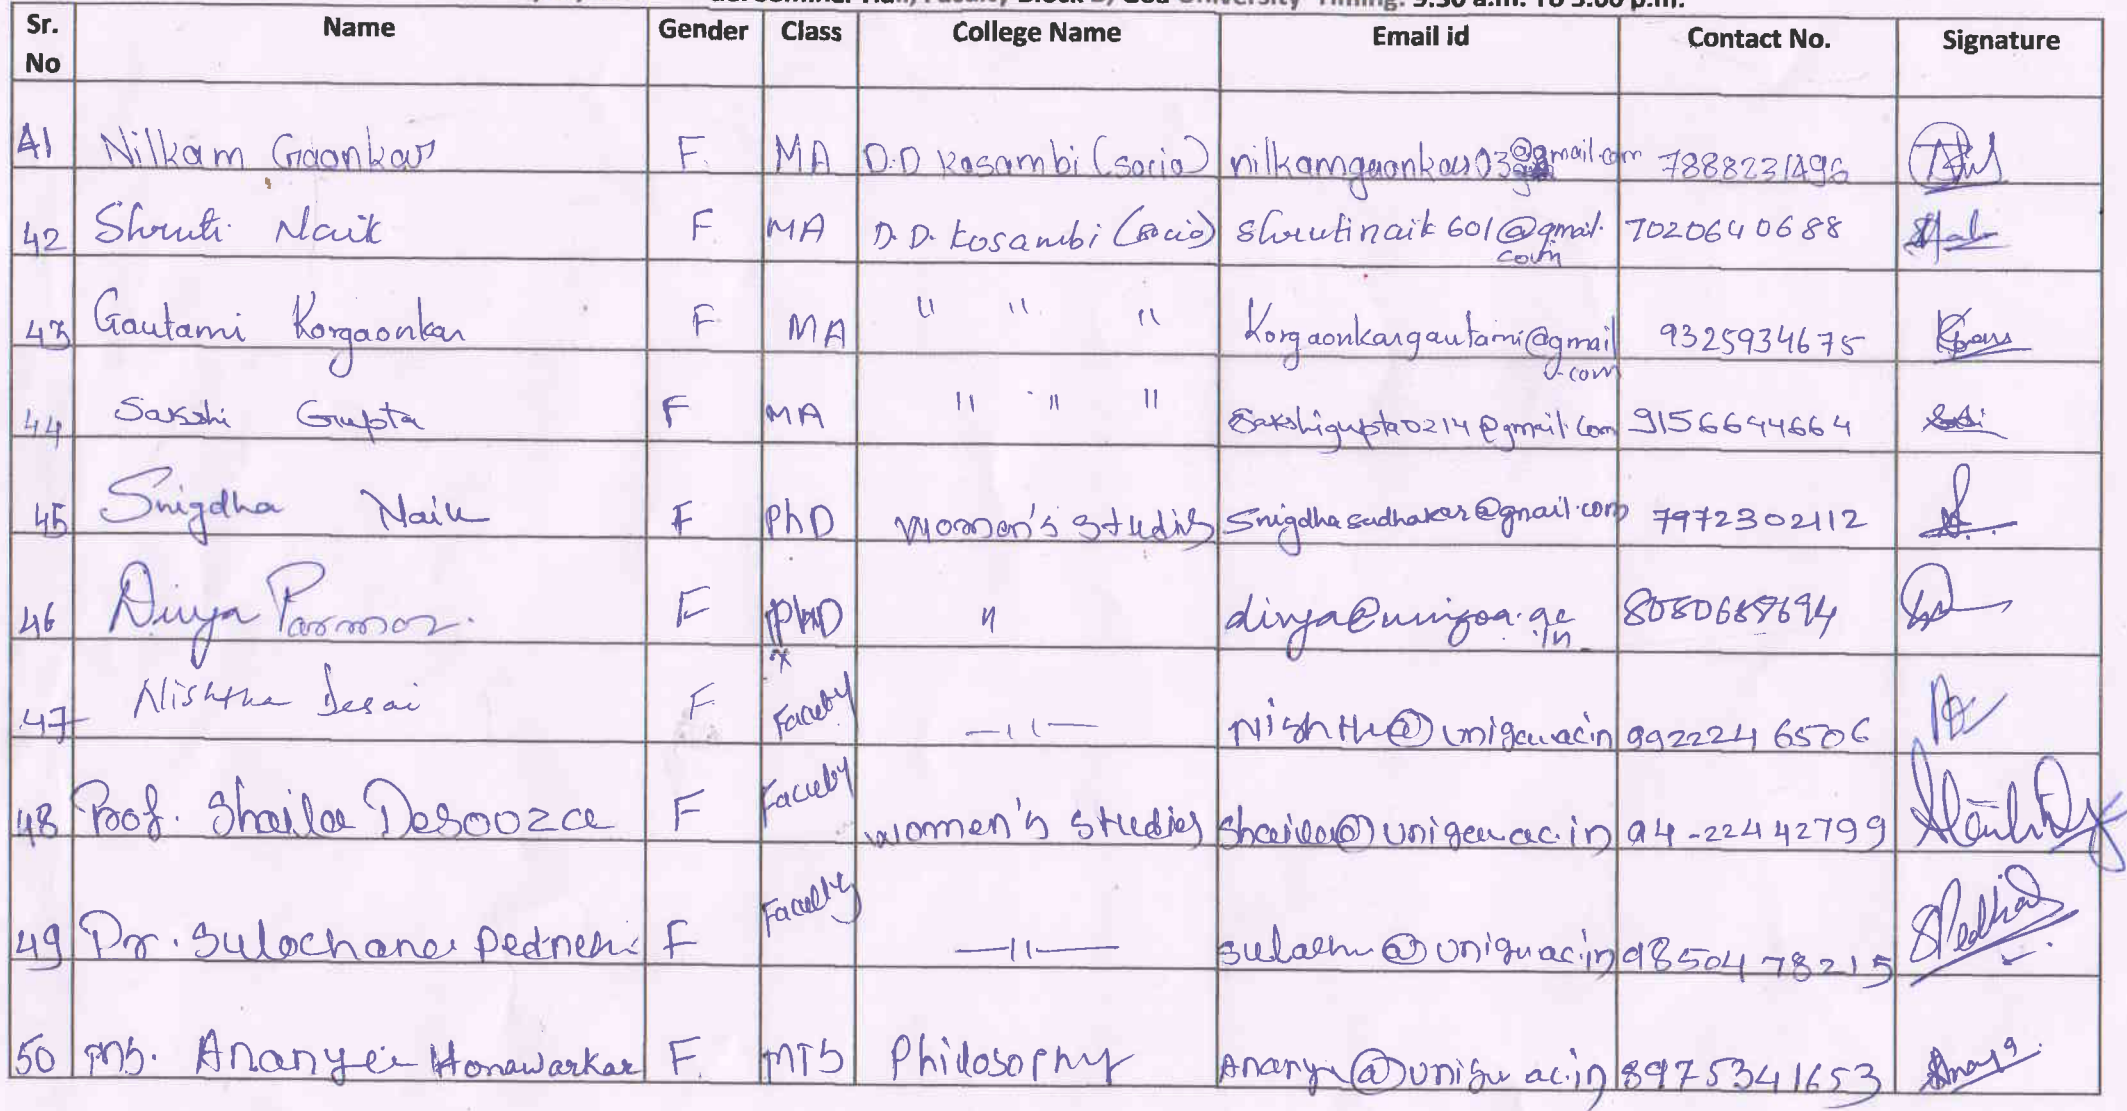 Seminar Hall, Faculty Block D, Goa University Timing: 9.30 a.m. To 5.00 p.m.
Sr. No Name Gender Class College Name Email id Contact No. Signature
41 Nilkam Gaonkar F. MA D.D Kosambi (socio) nilkamgaonkar03@gmail.com 7888231496
42 Shruti Naik F MA D.D. Kosambi (socio) shrutinaik601@gmail.com 7020640688
43 Gautami Korgaonkar F MA " " " Korgaonkargautami@gmail.com 9325934675
44 Sakshi Gupta F MA " " " Sakshigupta0214@gmail.com 9156644664
45 Snigdha Naik F PhD Women's Studies Snigdhasudhakar@gmail.com 7972302112
46 Divya Parmar. F PhD " divya@unigoa.ac.in
47 Nishtha Desai F Faculty —11— 9922246506
48 Prof. Shaila Desouza F Faculty Women's Studies 94-22442799
49 Dr. Sulochana Pednekar F Faculty —11— 9850478215
50 Ms. Ananya Honawarkar F. MTS Philosophy 8975341653